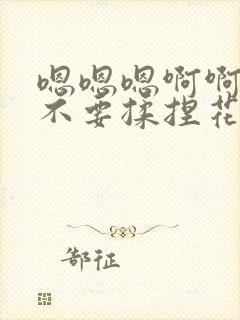 嗯嗯嗯啊啊
不要揉捏花
郜征